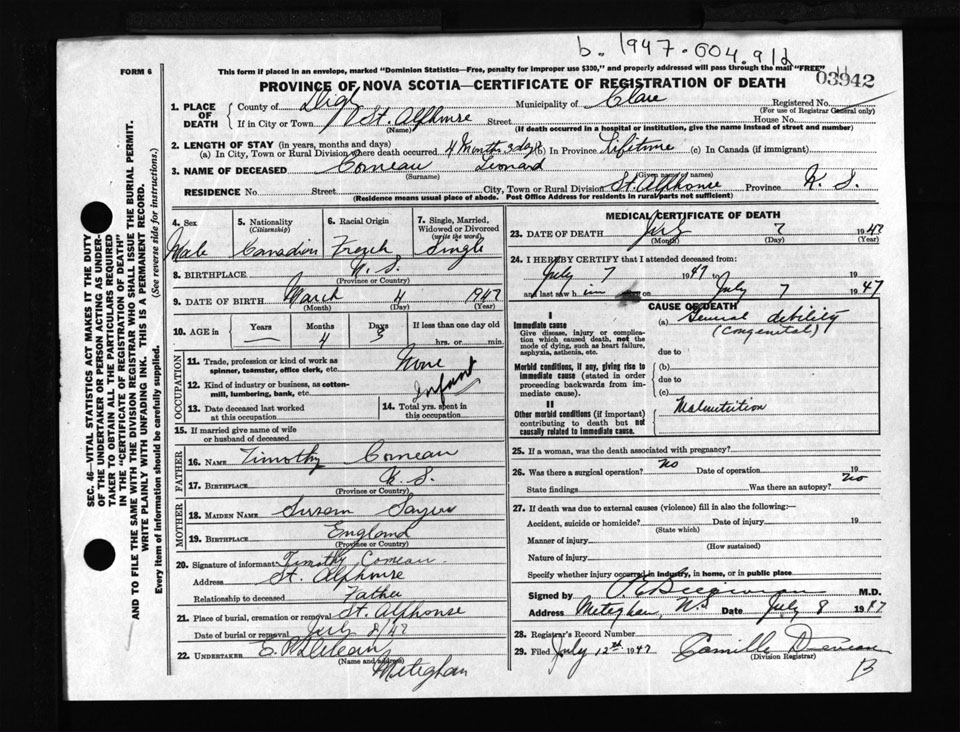 b. 1947-004912
FORM 6
This form if placed in an envelope, marked "Dominion Statistics—Free, penalty for improper use $300," and properly addressed will pass through the mail "FREE"
03942
PROVINCE OF NOVA SCOTIA—CERTIFICATE OF REGISTRATION OF DEATH
1. PLACE OF DEATH
County of Digby Municipality of Clare Registered No.
(For use of Registrar General only)
If in City or Town St. Alphonse Street House No.
(Name) (If death occurred in a hospital or institution, give the name instead of street and number)
2. LENGTH OF STAY (in years, months and days)
(a) In City, Town or Rural Division where death occurred 4 Months 3 days (b) In Province Lifetime (c) In Canada (if immigrant)
3. NAME OF DECEASED Comeau Leonard
(Surname) (Given name or names)
RESIDENCE No. Street City, Town or Rural Division St. Alphonse Province N. S.
(Residence means usual place of abode. Post Office Address for residents in rural parts not sufficient)
4. Sex
Male
5. Nationality
(Citizenship)
Canadian
6. Racial Origin
French
7. Single, Married, Widowed or Divorced
(write the word)
Single
8. BIRTHPLACE N. S.
(Province or Country)
9. DATE OF BIRTH March 4 1947
(Month) (Day) (Year)
10. AGE in Years Months Days If less than one day old
— 4 3 hrs. or min.
OCCUPATION
11. Trade, profession or kind of work as spinner, teamster, office clerk, etc. None
12. Kind of industry or business, as cotton-mill, lumbering, bank, etc. Infant
13. Date deceased last worked at this occupation
14. Total yrs. spent in this occupation
15. If married give name of wife or husband of deceased
FATHER
16. Name Timothy Comeau
17. Birthplace N. S.
(Province or Country)
MOTHER
18. Maiden Name
19. Birthplace England
(Province or Country)
20. Signature of informant Timothy Comeau
Address St. Alphonse
Relationship to deceased Father
21. Place of burial, cremation or removal St. Alphonse
Date of burial or removal July 8/47
22. UNDERTAKER
(Name and address)
Meteghan
MEDICAL CERTIFICATE OF DEATH
23. DATE OF DEATH July 7 1947
(Month) (Day) (Year)
24. I HEREBY CERTIFY that I attended deceased from:
July 7 1947 to July 7 19
and last saw him on July 7 1947
CAUSE OF DEATH
I
Immediate cause
Give disease, injury or complication which caused death, not the mode of dying, such as heart failure, asphyxia, asthenia, etc.
(a) General debility
(Congenital)
due to
Morbid conditions, if any, giving rise to immediate cause (stated in order proceeding backwards from immediate cause).
(b)
due to
(c)
II
Other morbid conditions (if important) contributing to death but not causally related to immediate cause.
Malnutrition
25. If a woman, was the death associated with pregnancy?
26. Was there a surgical operation? no Date of operation 19
State findings Was there an autopsy? no
27. If death was due to external causes (violence) fill in also the following:—
Accident, suicide or homicide? Date of injury 19
(State which)
Manner of injury
(How sustained)
Nature of injury
Specify whether injury occurred in industry, in home, or in public place
Signed by M.D.
Address Meteghan, N.S Date July 8 1947
28. Registrar's Record Number
29. Filed July 12th 1947 Camille
(Division Registrar)
B
SEC. 46—VITAL STATISTICS ACT MAKES IT THE DUTY
OF THE UNDERTAKER OR PERSON ACTING AS UNDER-
TAKER TO OBTAIN ALL THE PARTICULARS REQUIRED
IN THE "CERTIFICATE OF REGISTRATION OF DEATH"
AND TO FILE THE SAME WITH THE DIVISION REGISTRAR WHO SHALL ISSUE THE BURIAL PERMIT.
WRITE PLAINLY WITH UNFADING INK. THIS IS A PERMANENT RECORD.
Every item of information should be carefully supplied. (See reverse side for instructions.)